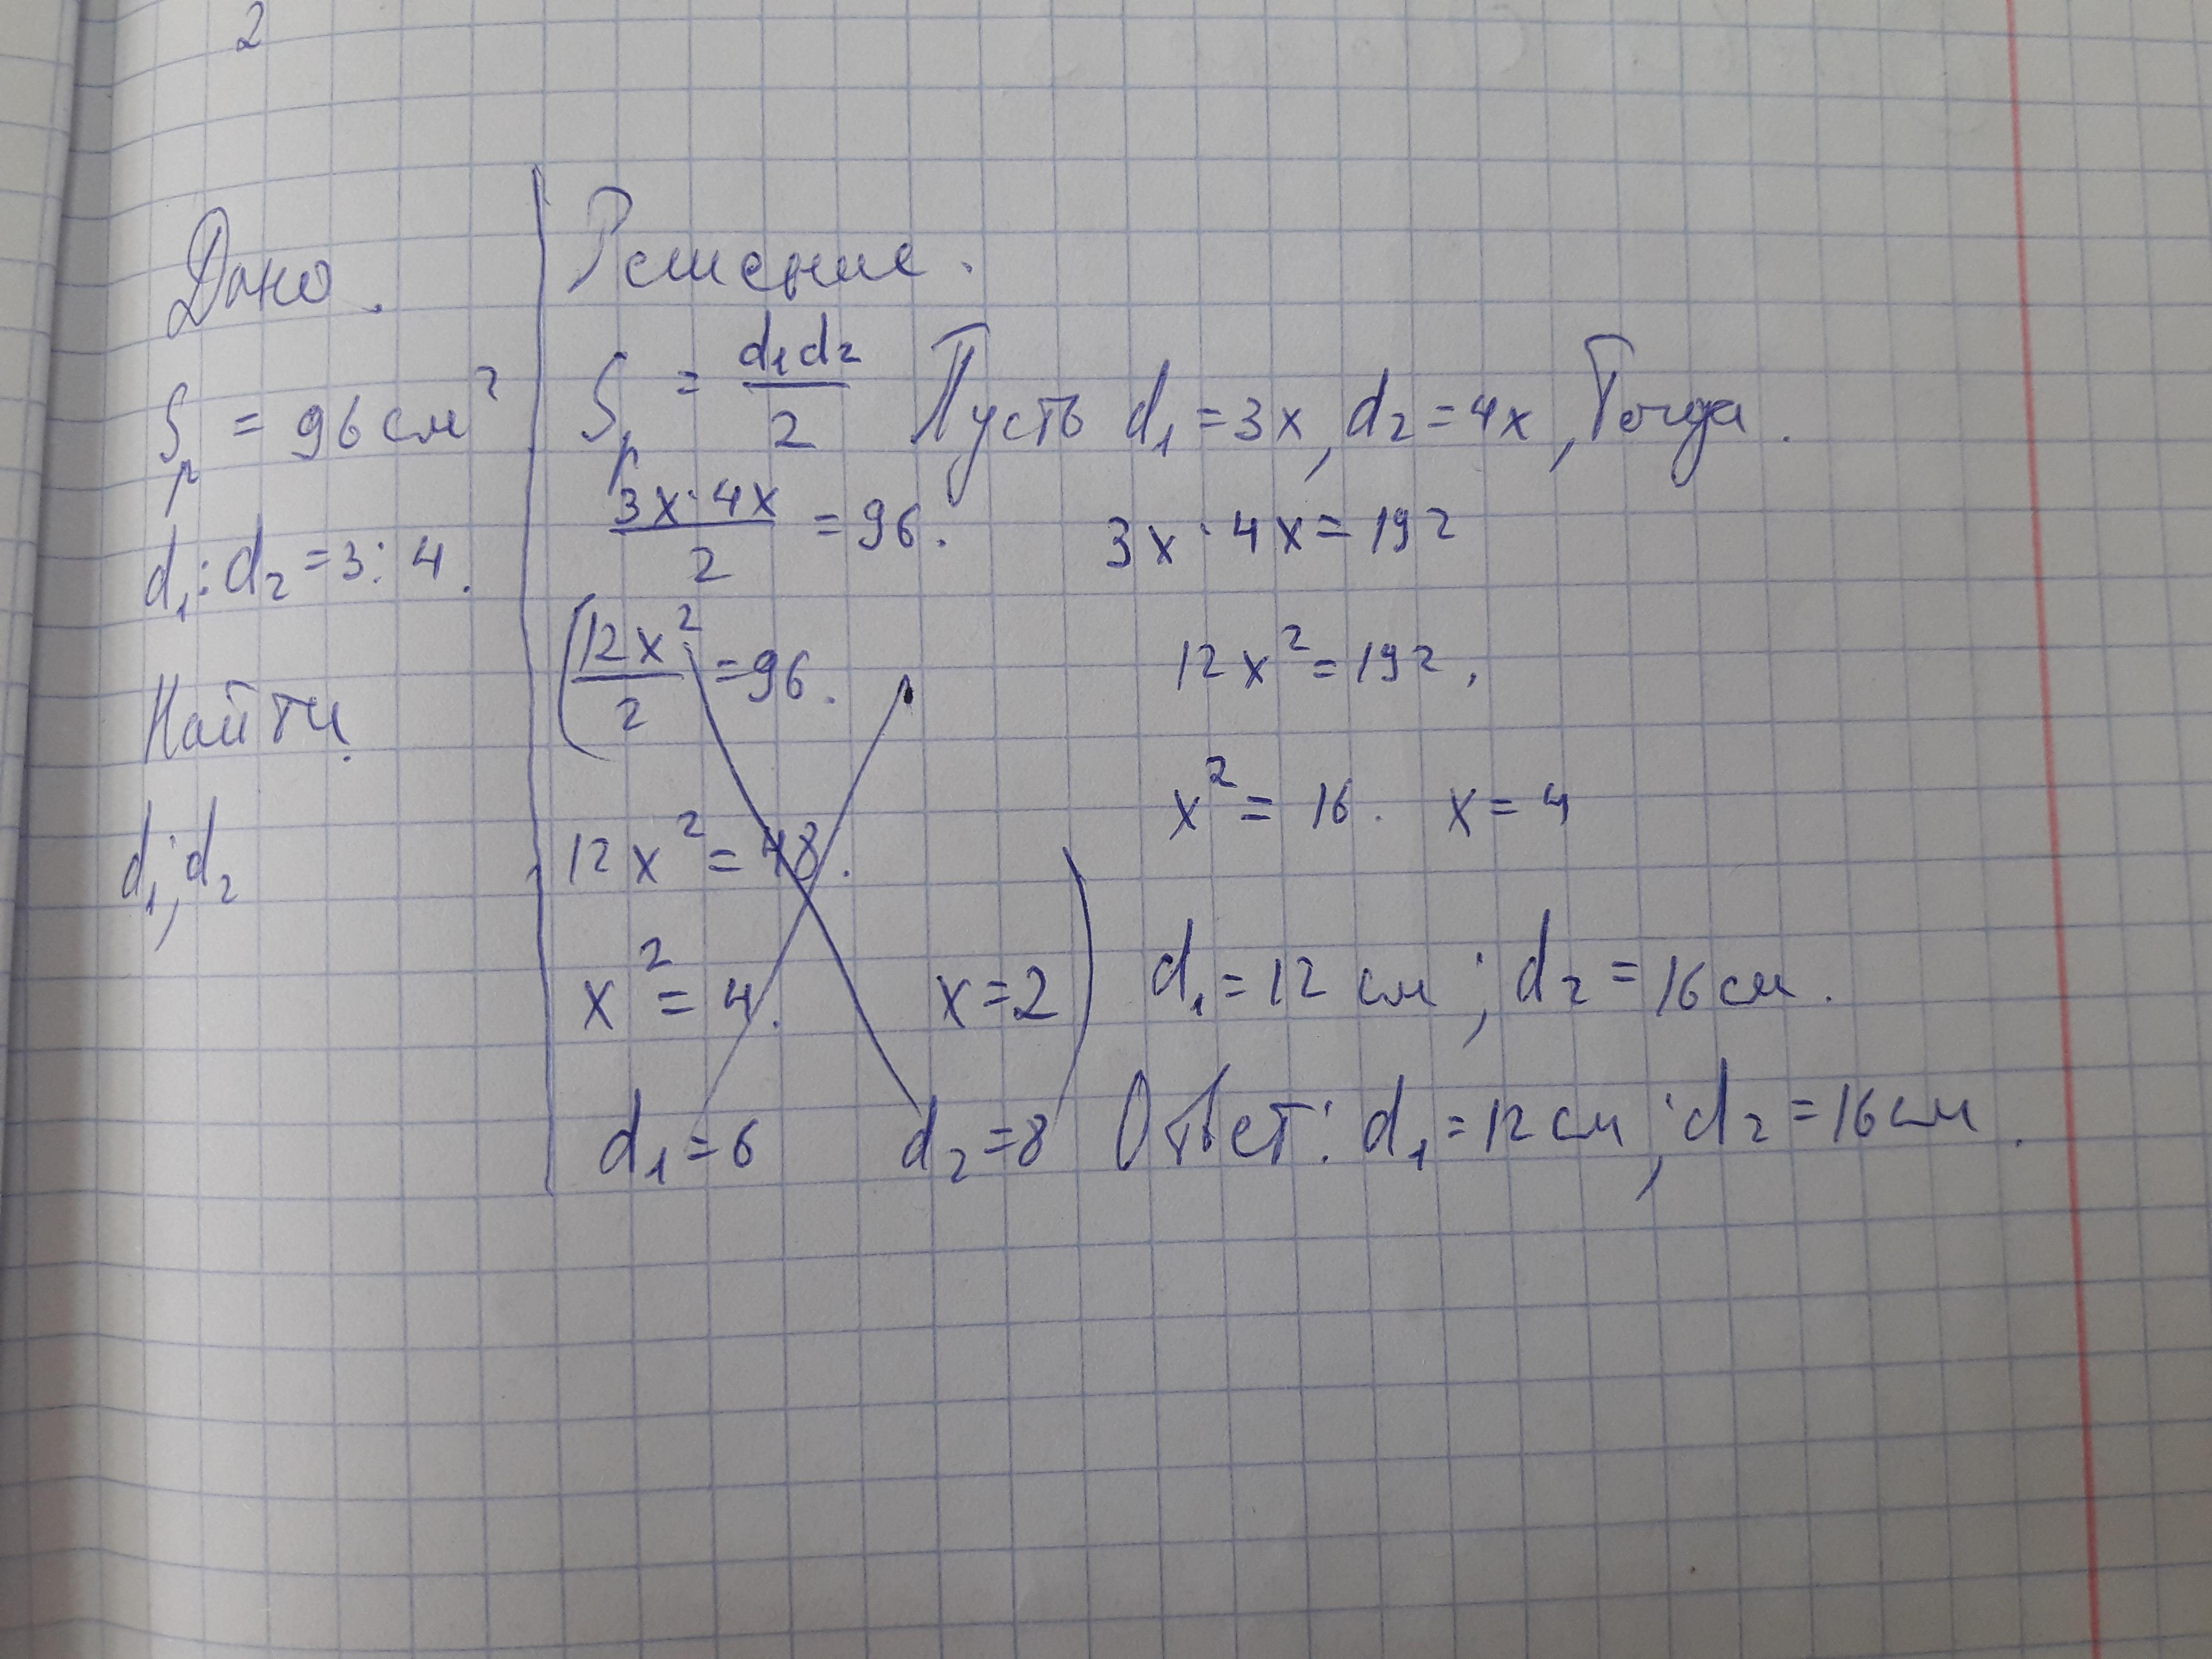 2
Дано.
S_р = 96 см²
d₁ : d₂ = 3 : 4.
Найти.
d₁; d₂
Решение.
S_р = d₁d₂/2 Пусть d₁ = 3x, d₂ = 4x, Тогда.
3x · 4x/2 = 96. 3x · 4x = 192
(12x²/2 = 96. 12x² = 192.
12x² = 48. x² = 16. x = 4
x² = 4. x = 2 d₁ = 12 см; d₂ = 16 см.
d₁ = 6 d₂ = 8) Ответ: d₁ = 12 см; d₂ = 16 см.